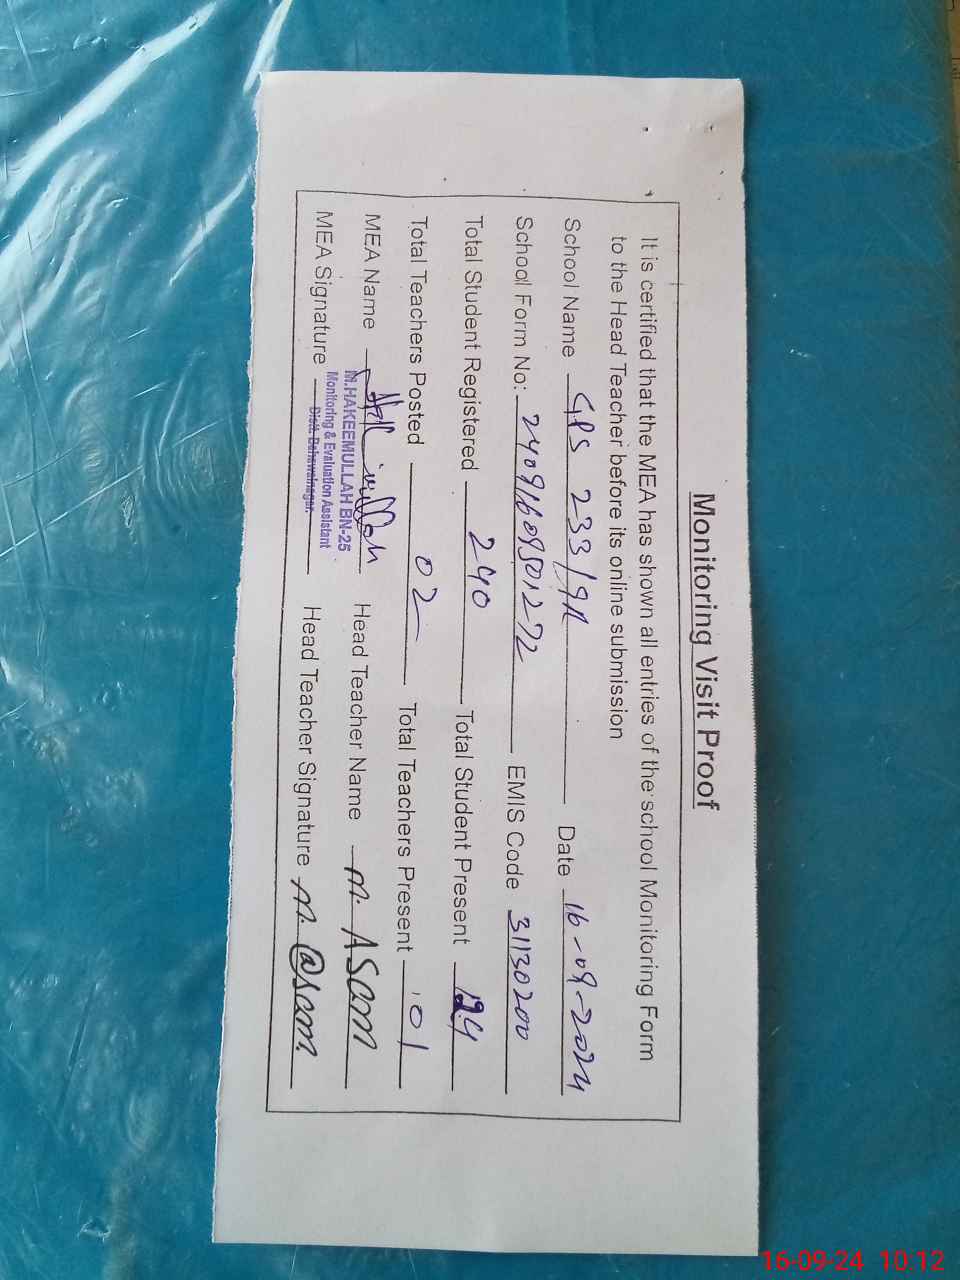 Monitoring Visit Proof
It is certified that the MEA has shown all entries of the school Monitoring Form
to the Head Teacher before its online submission
School Name GPS 233/9R Date 16-09-2024
School Form No: 24091609501272 EMIS Code 31130200
Total Student Registered 240 Total Student Present 124
Total Teachers Posted 02 Total Teachers Present 01
MEA Name Head Teacher Name M. ASam
MEA Signature Head Teacher Signature M. @sam
M.HAKEEMULLAH BN-25
Monitoring & Evaluation Assistant
Distt. Bahawalnagar.
16-09-24 10:12